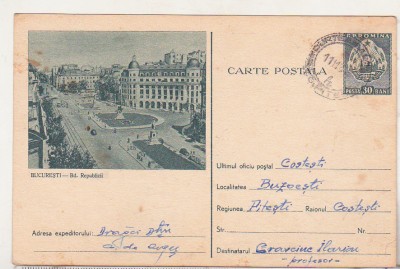 R.P. ROMINA
CARTE POSTALĂ
POSTA 30 BANI
BUCUREȘTI — Bd. Republicii
Ultimul oficiu poștal Costești
Localitatea Buzoești
Regiunea Pitești Raionul Costești
Str. Nr.
Adresa expeditorului:
Destinatarul
profesor